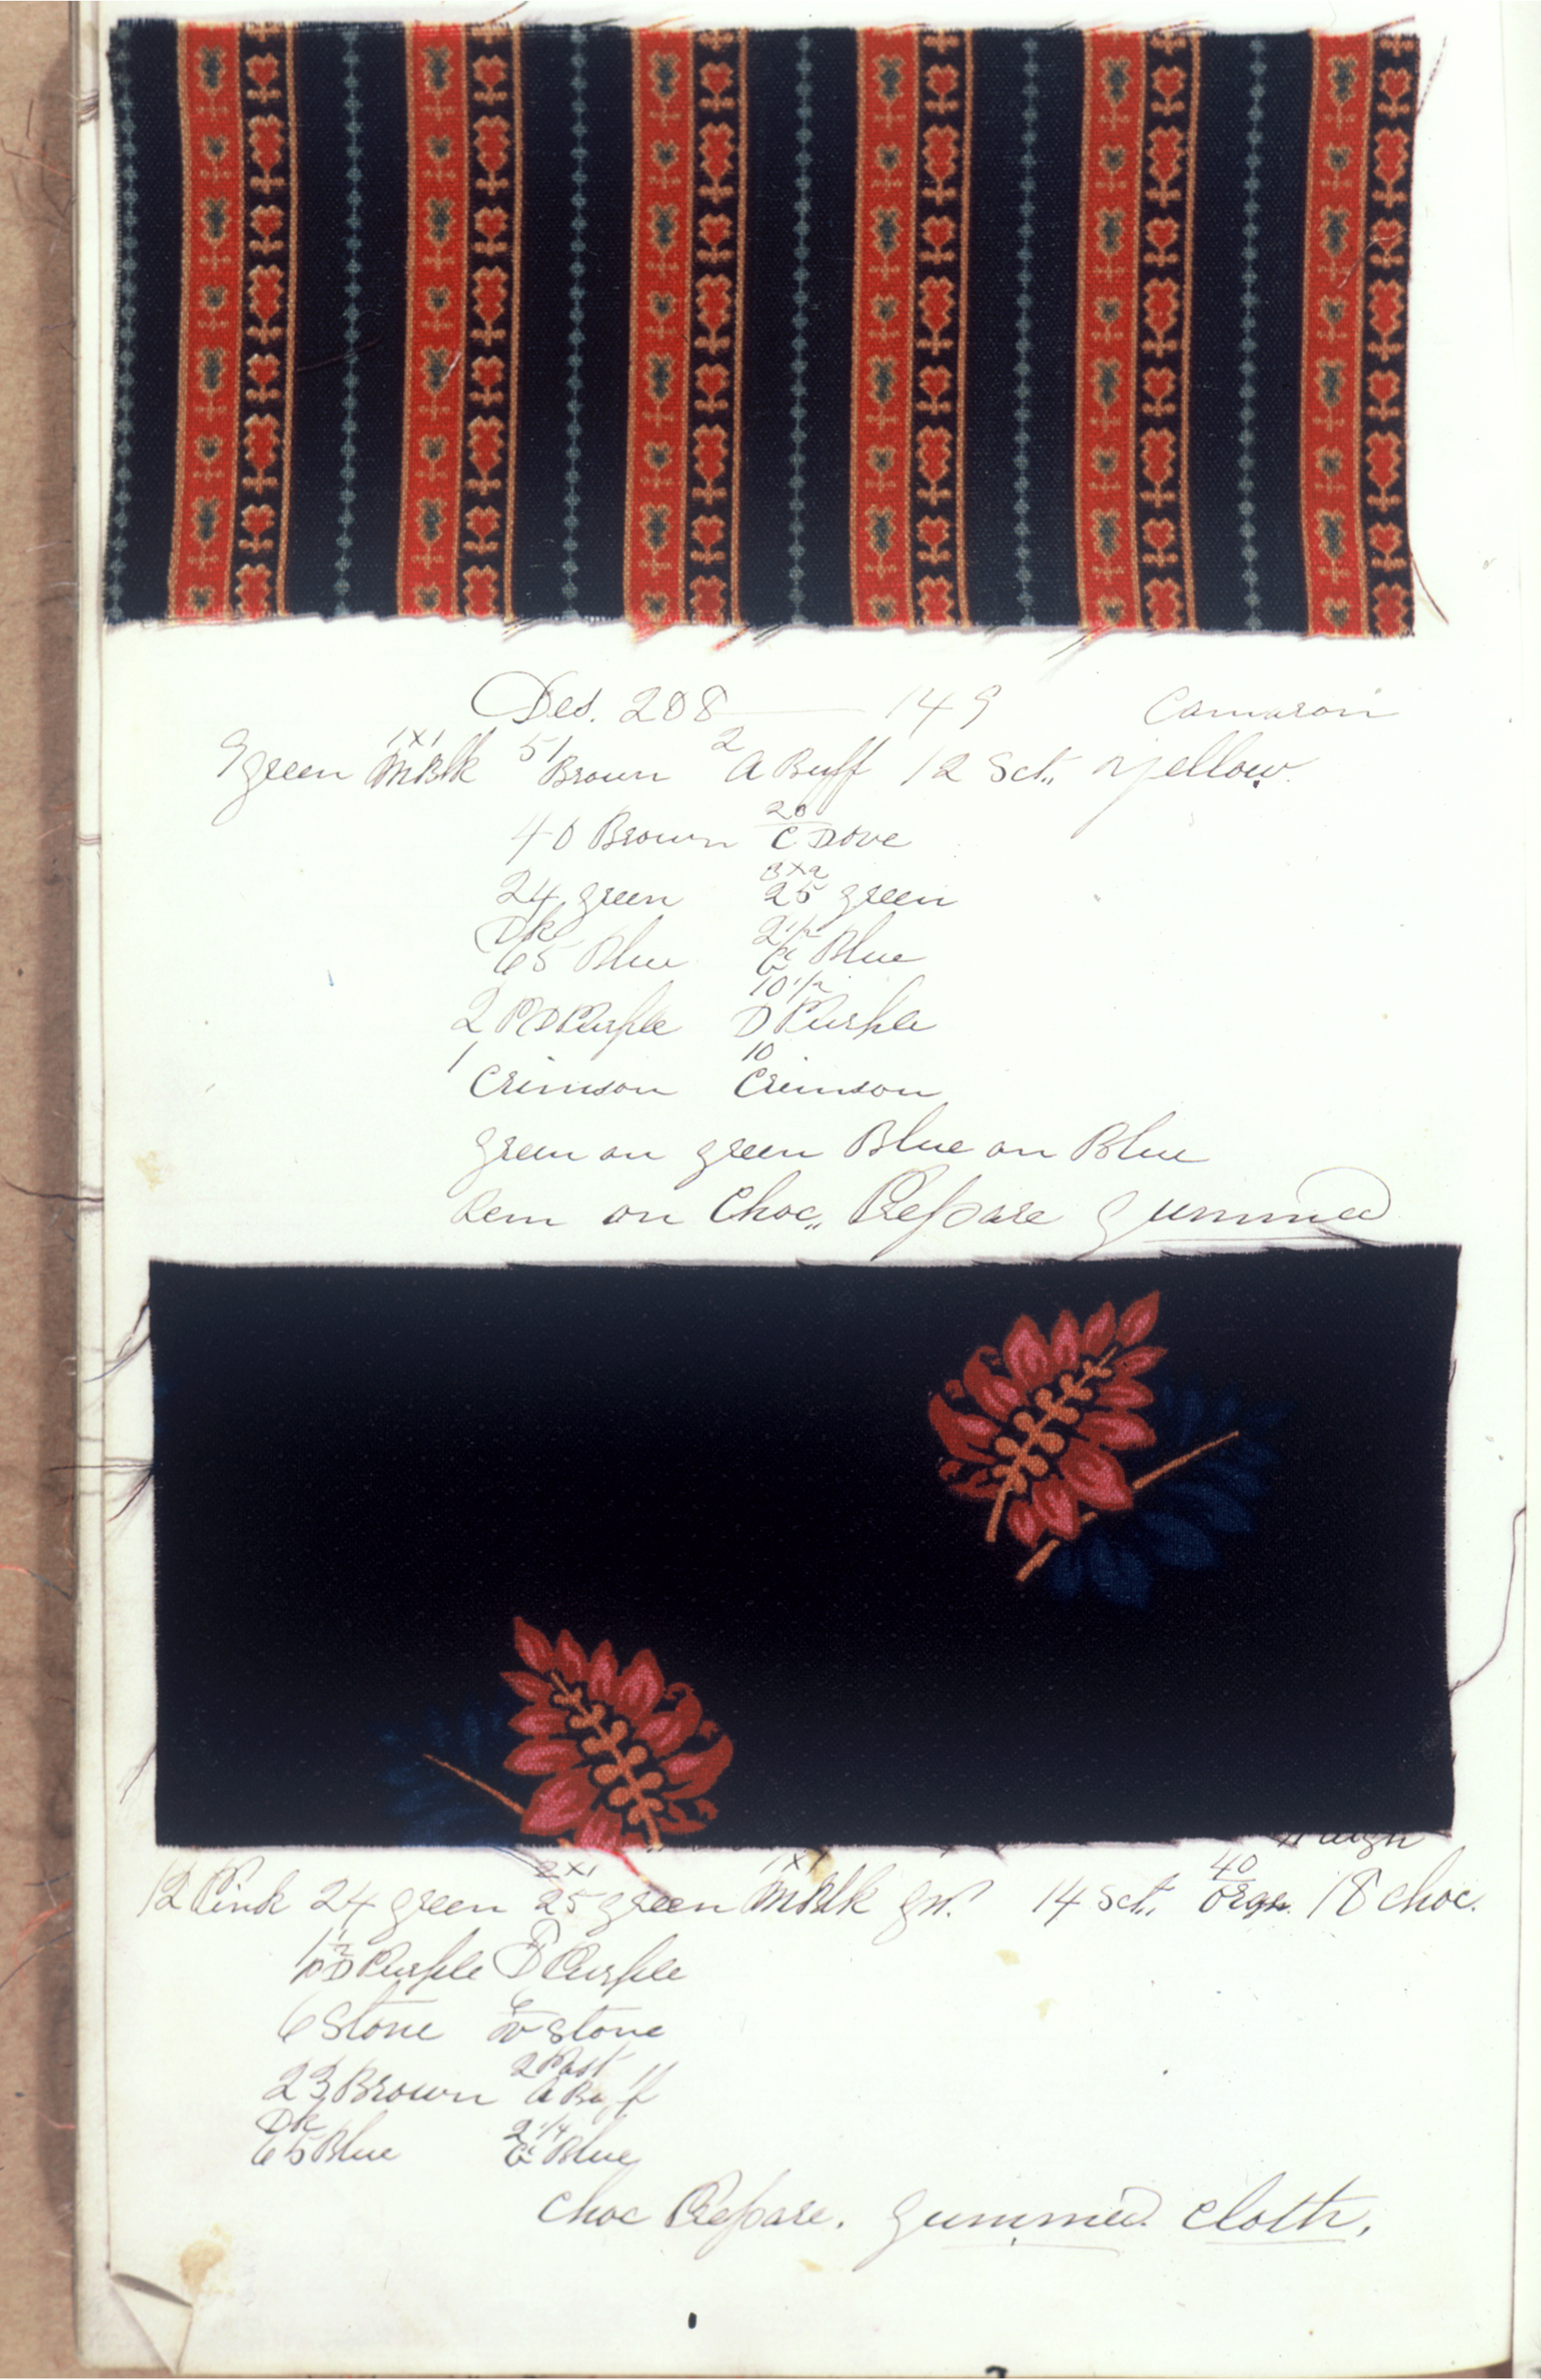 Des. 208 — 149 Camaron
9 green 1x1 MBlk 51 Brown 2 A Buff 12 Sct., yellow.
40 Brown 20 C Dove
24 green 3x2 25 green
Dk 65 Blue 2 1/2 Blue
2 PD Purple 10 1/2 D Purple
1 Crimson 10 Crimson
green on green Blue on Blue
on Choc,, Prepare Gummed
12 Pink 24 green 2x1 25 green 1x1 MBlk gn. 14 Sct. 40 Orge. 18 choc.
Purple D Purple
6 Stone 6 Stone
23 Brown 2 Past A Buff
Dk 65 Blue 2 1/4 Blue
Choc Prepare. Gummed Cloth.